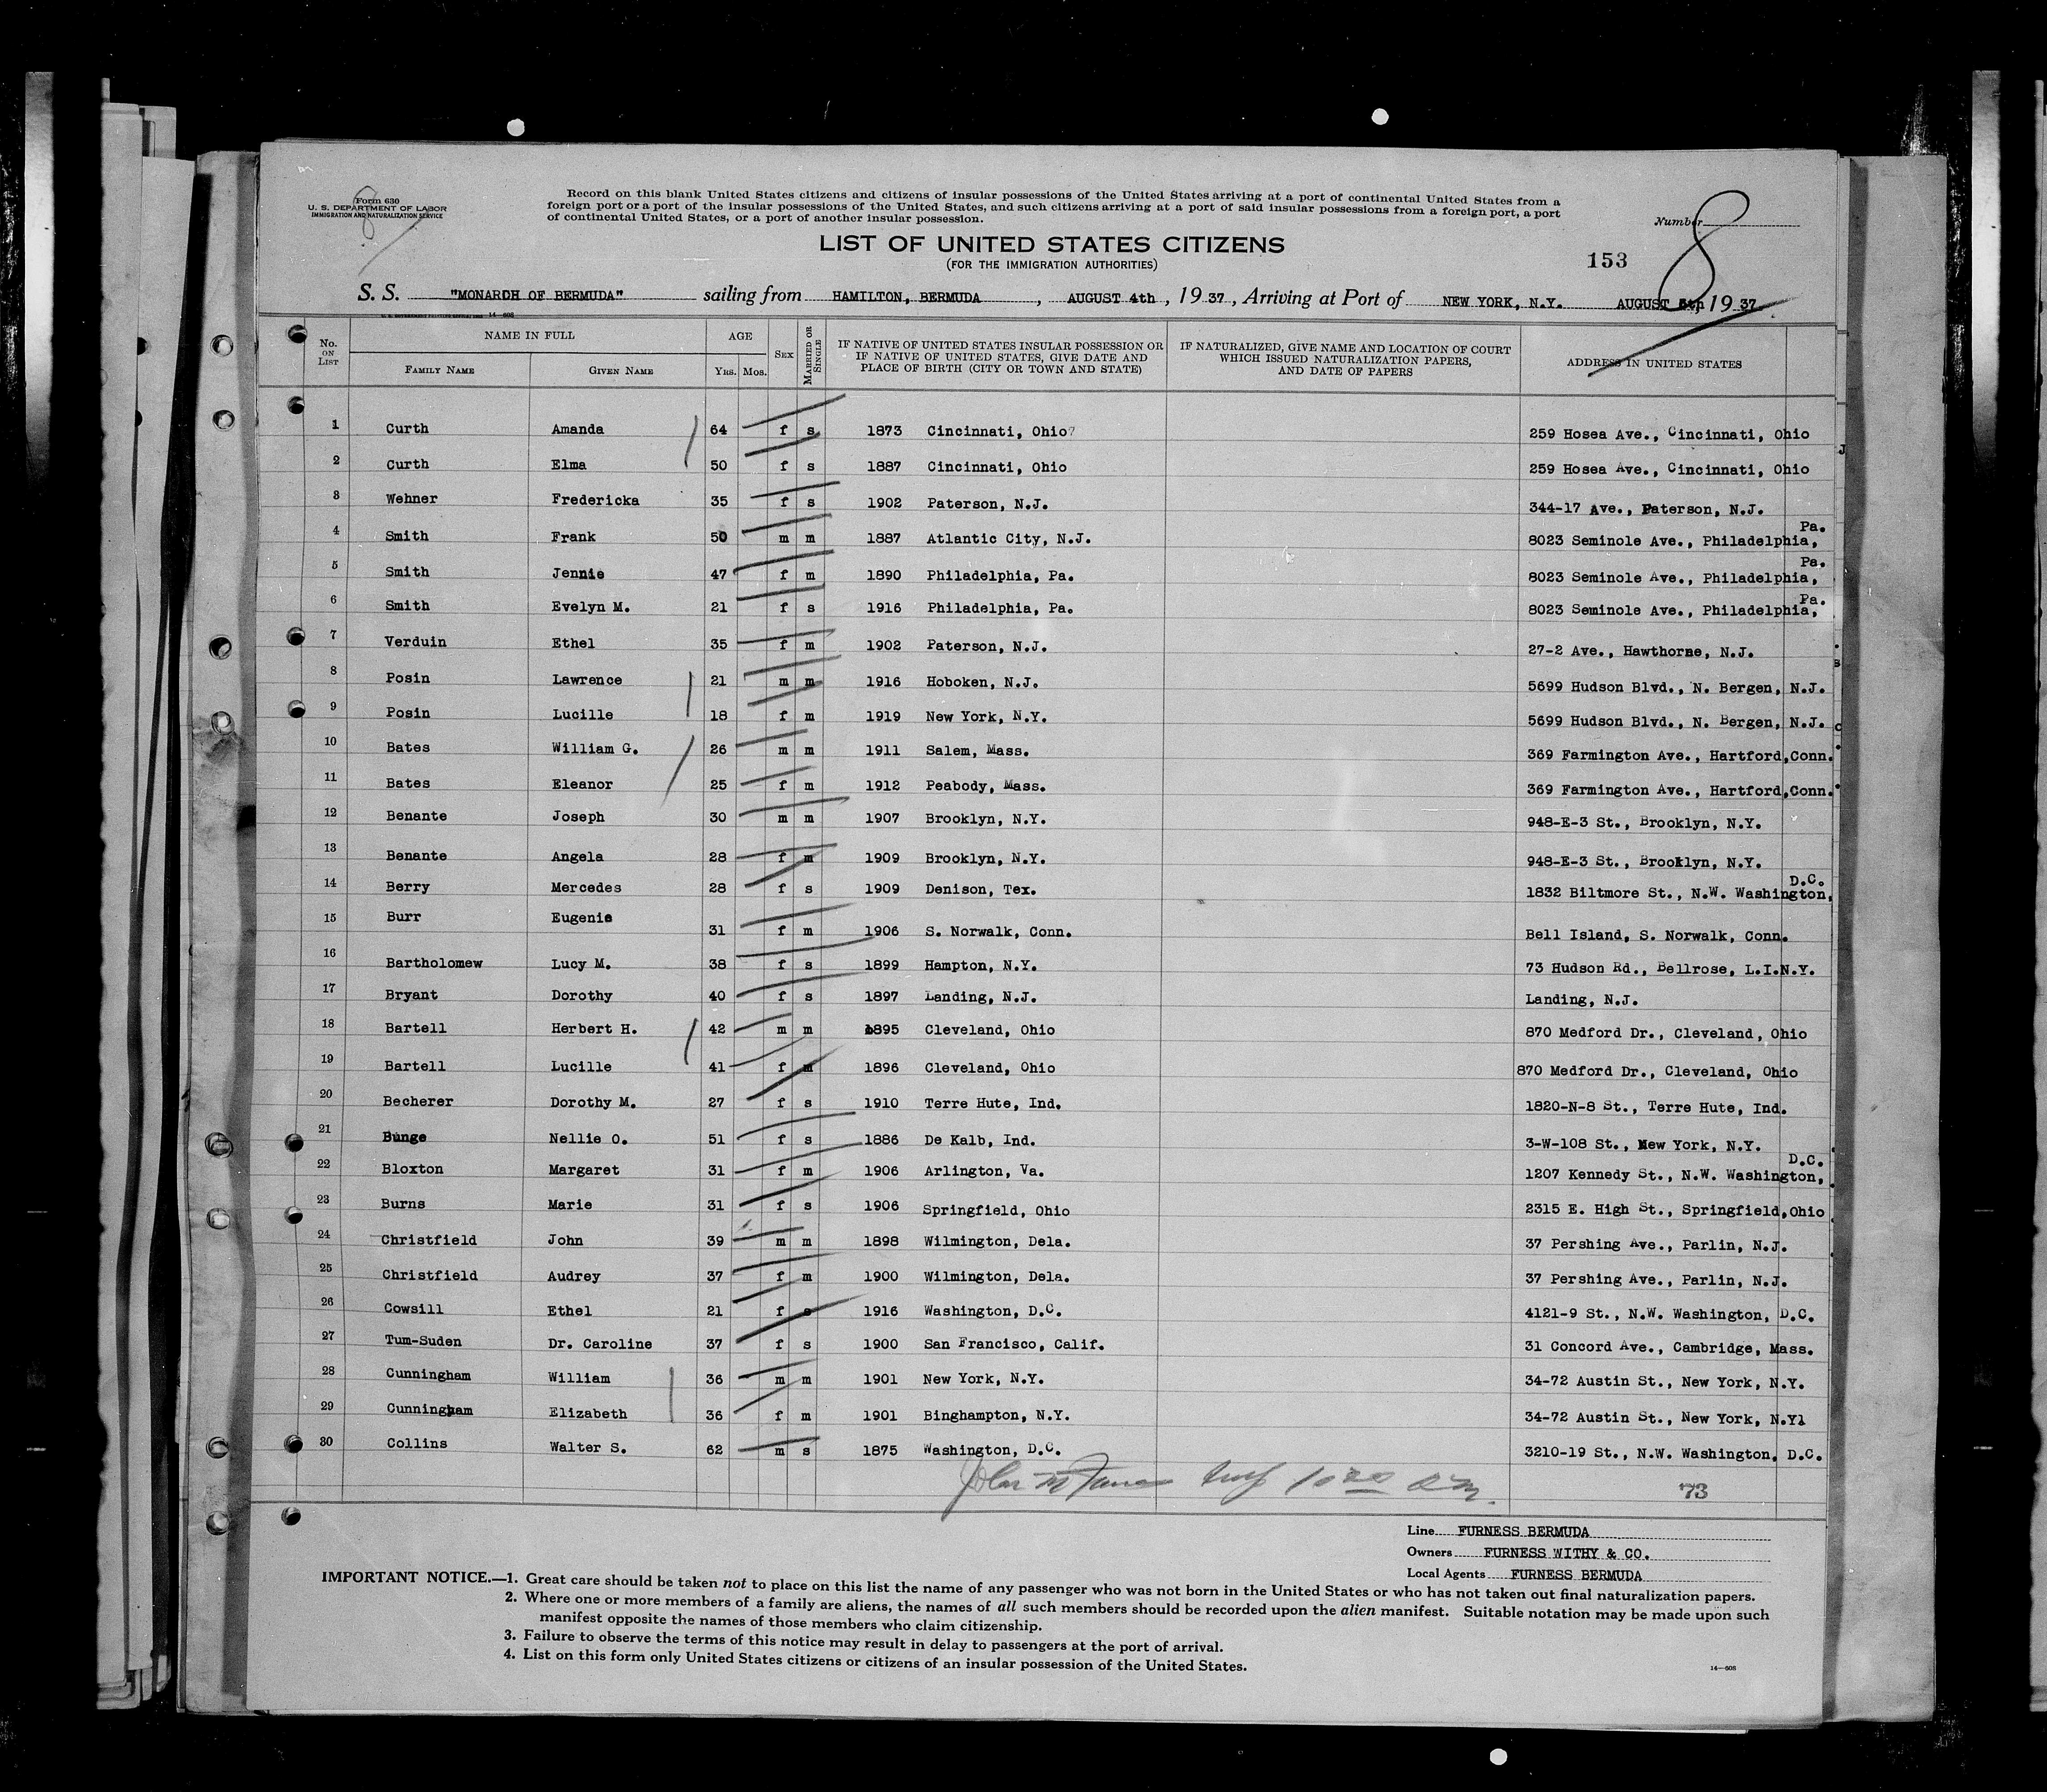 Form 630
U. S. DEPARTMENT OF LABOR
IMMIGRATION AND NATURALIZATION SERVICE
8
Record on this blank United States citizens and citizens of insular possessions of the United States arriving at a port of continental United States from a
foreign port or a port of the insular possessions of the United States, and such citizens arriving at a port of said insular possessions from a foreign port, a port
of continental United States, or a port of another insular possession.
Number 8
LIST OF UNITED STATES CITIZENS
(FOR THE IMMIGRATION AUTHORITIES)
153
S. S. "MONARCH OF BERMUDA" sailing from HAMILTON, BERMUDA, AUGUST 4th, 1937, Arriving at Port of NEW YORK, N.Y. AUGUST 6th, 1937
14-608
No. ON LIST NAME IN FULL AGE SEX MARRIED OR SINGLE IF NATIVE OF UNITED STATES INSULAR POSSESSION OR IF NATIVE OF UNITED STATES, GIVE DATE AND PLACE OF BIRTH (CITY OR TOWN AND STATE) IF NATURALIZED, GIVE NAME AND LOCATION OF COURT WHICH ISSUED NATURALIZATION PAPERS, AND DATE OF PAPERS ADDRESS IN UNITED STATES
FAMILY NAME GIVEN NAME YRS. MOS.
1 Curth Amanda 64 f s 1873 Cincinnati, Ohio7 259 Hosea Ave., Cincinnati, Ohio
2 Curth Elma 50 f s 1887 Cincinnati, Ohio 259 Hosea Ave., Cincinnati, Ohio
3 Wehner Fredericka 35 f s 1902 Paterson, N.J. 344-17 Ave., Paterson, N.J.
4 Smith Frank 50 m m 1887 Atlantic City, N.J. 8023 Seminole Ave., Philadelphia, Pa.
5 Smith Jennie 47 f m 1890 Philadelphia, Pa. 8023 Seminole Ave., Philadelphia, Pa.
6 Smith Evelyn M. 21 f s 1916 Philadelphia, Pa. 8023 Seminole Ave., Philadelphia, Pa.
7 Verduin Ethel 35 f m 1902 Paterson, N.J. 27-2 Ave., Hawthorne, N.J.
8 Posin Lawrence 21 m m 1916 Hoboken, N.J. 5699 Hudson Blvd., N. Bergen, N.J.
9 Posin Lucille 18 f m 1919 New York, N.Y. 5699 Hudson Blvd., N. Bergen, N.J.
10 Bates William G. 26 m m 1911 Salem, Mass. 369 Farmington Ave., Hartford,Conn.
11 Bates Eleanor 25 f m 1912 Peabody, Mass. 369 Farmington Ave., Hartford,Conn.
12 Benante Joseph 30 m m 1907 Brooklyn, N.Y. 948-E-3 St., Brooklyn, N.Y.
13 Benante Angela 28 f m 1909 Brooklyn, N.Y. 948-E-3 St., Brooklyn, N.Y.
14 Berry Mercedes 28 f s 1909 Denison, Tex. 1832 Biltmore St., N.W. Washington, D.C.
15 Burr Eugenie 31 f m 1906 S. Norwalk, Conn. Bell Island, S. Norwalk, Conn.
16 Bartholomew Lucy M. 38 f s 1899 Hampton, N.Y. 73 Hudson Rd., Bellrose, L.I.N.Y.
17 Bryant Dorothy 40 f s 1897 Landing, N.J. Landing, N.J.
18 Bartell Herbert H. 42 m m 1895 Cleveland, Ohio 870 Medford Dr., Cleveland, Ohio
19 Bartell Lucille 41 f m 1896 Cleveland, Ohio 870 Medford Dr., Cleveland, Ohio
20 Becherer Dorothy M. 27 f s 1910 Terre Hute, Ind. 1820-N-8 St., Terre Hute, Ind.
21 Bunge Nellie O. 51 f s 1886 De Kalb, Ind. 3-W-108 St., New York, N.Y.
22 Bloxton Margaret 31 f m 1906 Arlington, Va. 1207 Kennedy St., N.W. Washington, D.C.
23 Burns Marie 31 f s 1906 Springfield, Ohio 2315 E. High St., Springfield,Ohio
24 Christfield John 39 m m 1898 Wilmington, Dela. 37 Pershing Ave., Parlin, N.J.
25 Christfield Audrey 37 f m 1900 Wilmington, Dela. 37 Pershing Ave., Parlin, N.J.
26 Cowsill Ethel 21 f s 1916 Washington, D.C. 4121-9 St., N.W. Washington, D.C.
27 Tum-Suden Dr. Caroline 37 f s 1900 San Francisco, Calif. 31 Concord Ave., Cambridge, Mass.
28 Cunningham William 36 m m 1901 New York, N.Y. 34-72 Austin St., New York, N.Y.
29 Cunningham Elizabeth 36 f m 1901 Binghampton, N.Y. 34-72 Austin St., New York, N.Yl
30 Collins Walter S. 62 m s 1875 Washington, D.C. 3210-19 St., N.W. Washington, D.C.
73
Line FURNESS BERMUDA
Owners FURNESS WITHY & CO.
Local Agents FURNESS BERMUDA
IMPORTANT NOTICE.—1. Great care should be taken not to place on this list the name of any passenger who was not born in the United States or who has not taken out final naturalization papers.
2. Where one or more members of a family are aliens, the names of all such members should be recorded upon the alien manifest. Suitable notation may be made upon such
manifest opposite the names of those members who claim citizenship.
3. Failure to observe the terms of this notice may result in delay to passengers at the port of arrival.
4. List on this form only United States citizens or citizens of an insular possession of the United States.
14—608